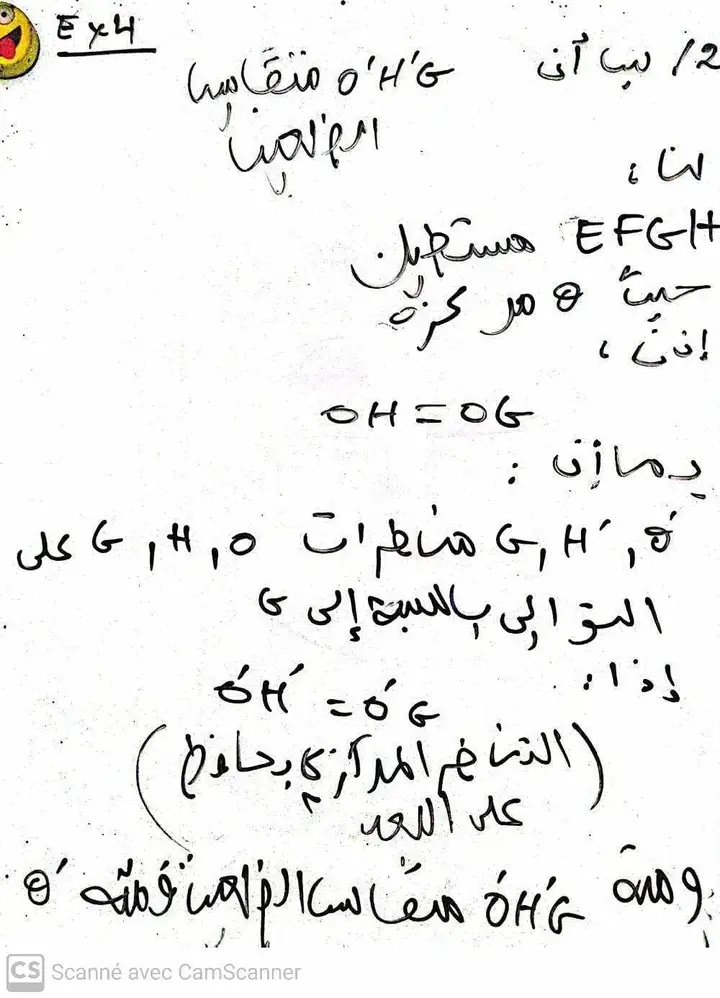 Ex4
2/ بين أن O'H'G متقايس
الضلعين
لنا :
EFGH مستطيل
حيث O مركزه
إذن :
OH = OG
بما أن :
O', H', G مناظرات O, H, G على
التوالي بالنسبة إلى G
إذا :
O'H' = O'G
(التناظر المركزي يحافظ
على البعد)
ومنه O'H'G متقايس الضلعين قمته O'
CS Scanné avec CamScanner